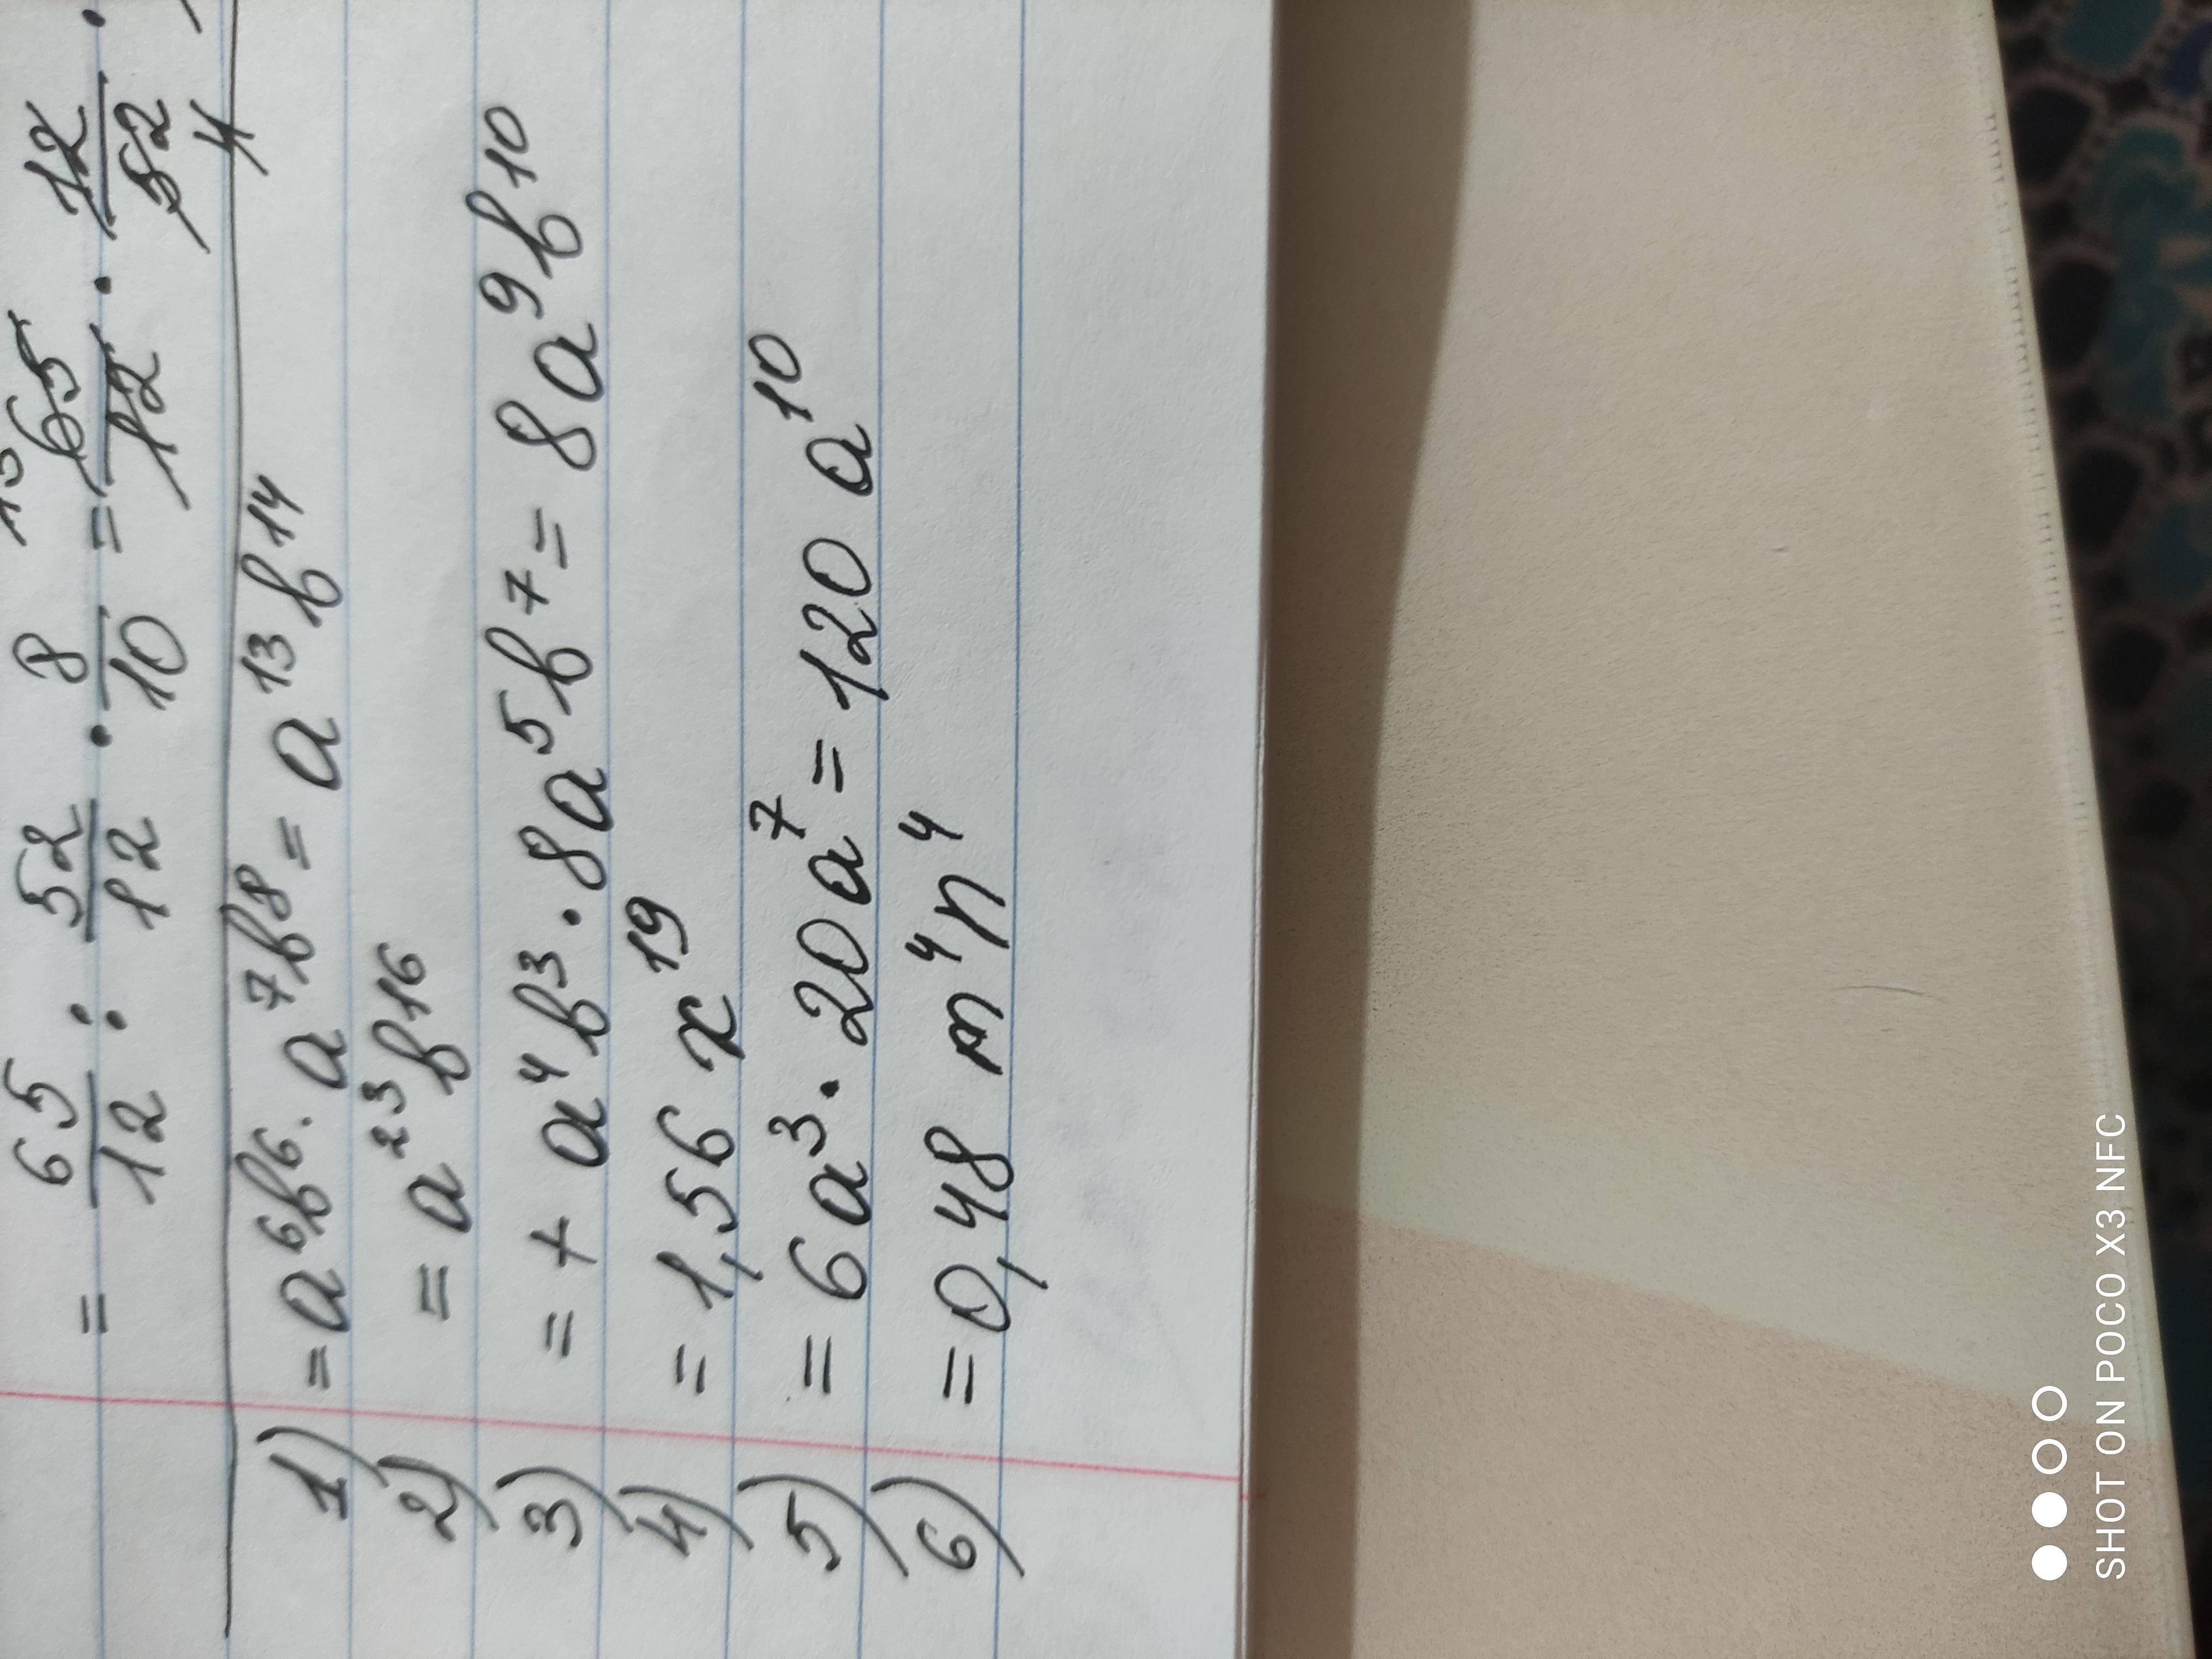 = 65/12 : 52/12 · 8/10 = 65/12 · 12/52 ·
13
4
1) = a⁶b⁶ · a⁷b⁸ = a¹³b¹⁴
2) = a²³b¹⁶
3) = + a⁴b³ · 8a⁵b⁷ = 8a⁹b¹⁰
4) = 1,56 x¹⁹
5) = 6a³ · 20a⁷ = 120 a¹⁰
6) = 0,48 m⁴n⁴
SHOT ON POCO X3 NFC